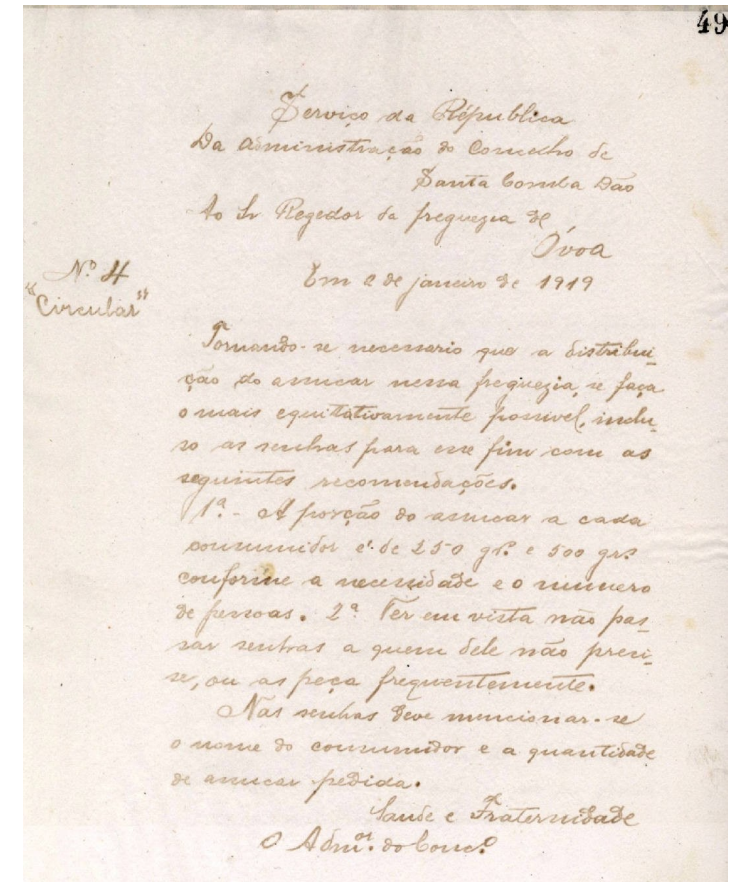 49
Serviço da Républica
Da Administração do Concelho de
Santa Comba Dão
Ao Sr Regedor da freguezia de
Óvoa
Nº 4
"Circular"
Em 2 de janeiro de 1919
Tornando-se necessario que a distribui-
ção do assucar nessa freguezia, se faça
o mais equitativamente possivel, inclu-
so as senhas para esse fim com as
seguintes recomendações.
1ª - A porção do assucar a cada
consumidor é de 250 grs. e 500 grs.
conforme a necessidade e o numero
de pessoas. 2ª Ter em vista não pas-
sar senhas a quem dele não preci-
se, ou as peça frequentemente.
Nas senhas deve mencionar-se
o nome do consumidor e a quantidade
de assucar pedida.
Saude e Fraternidade
O Admor. do Conco.